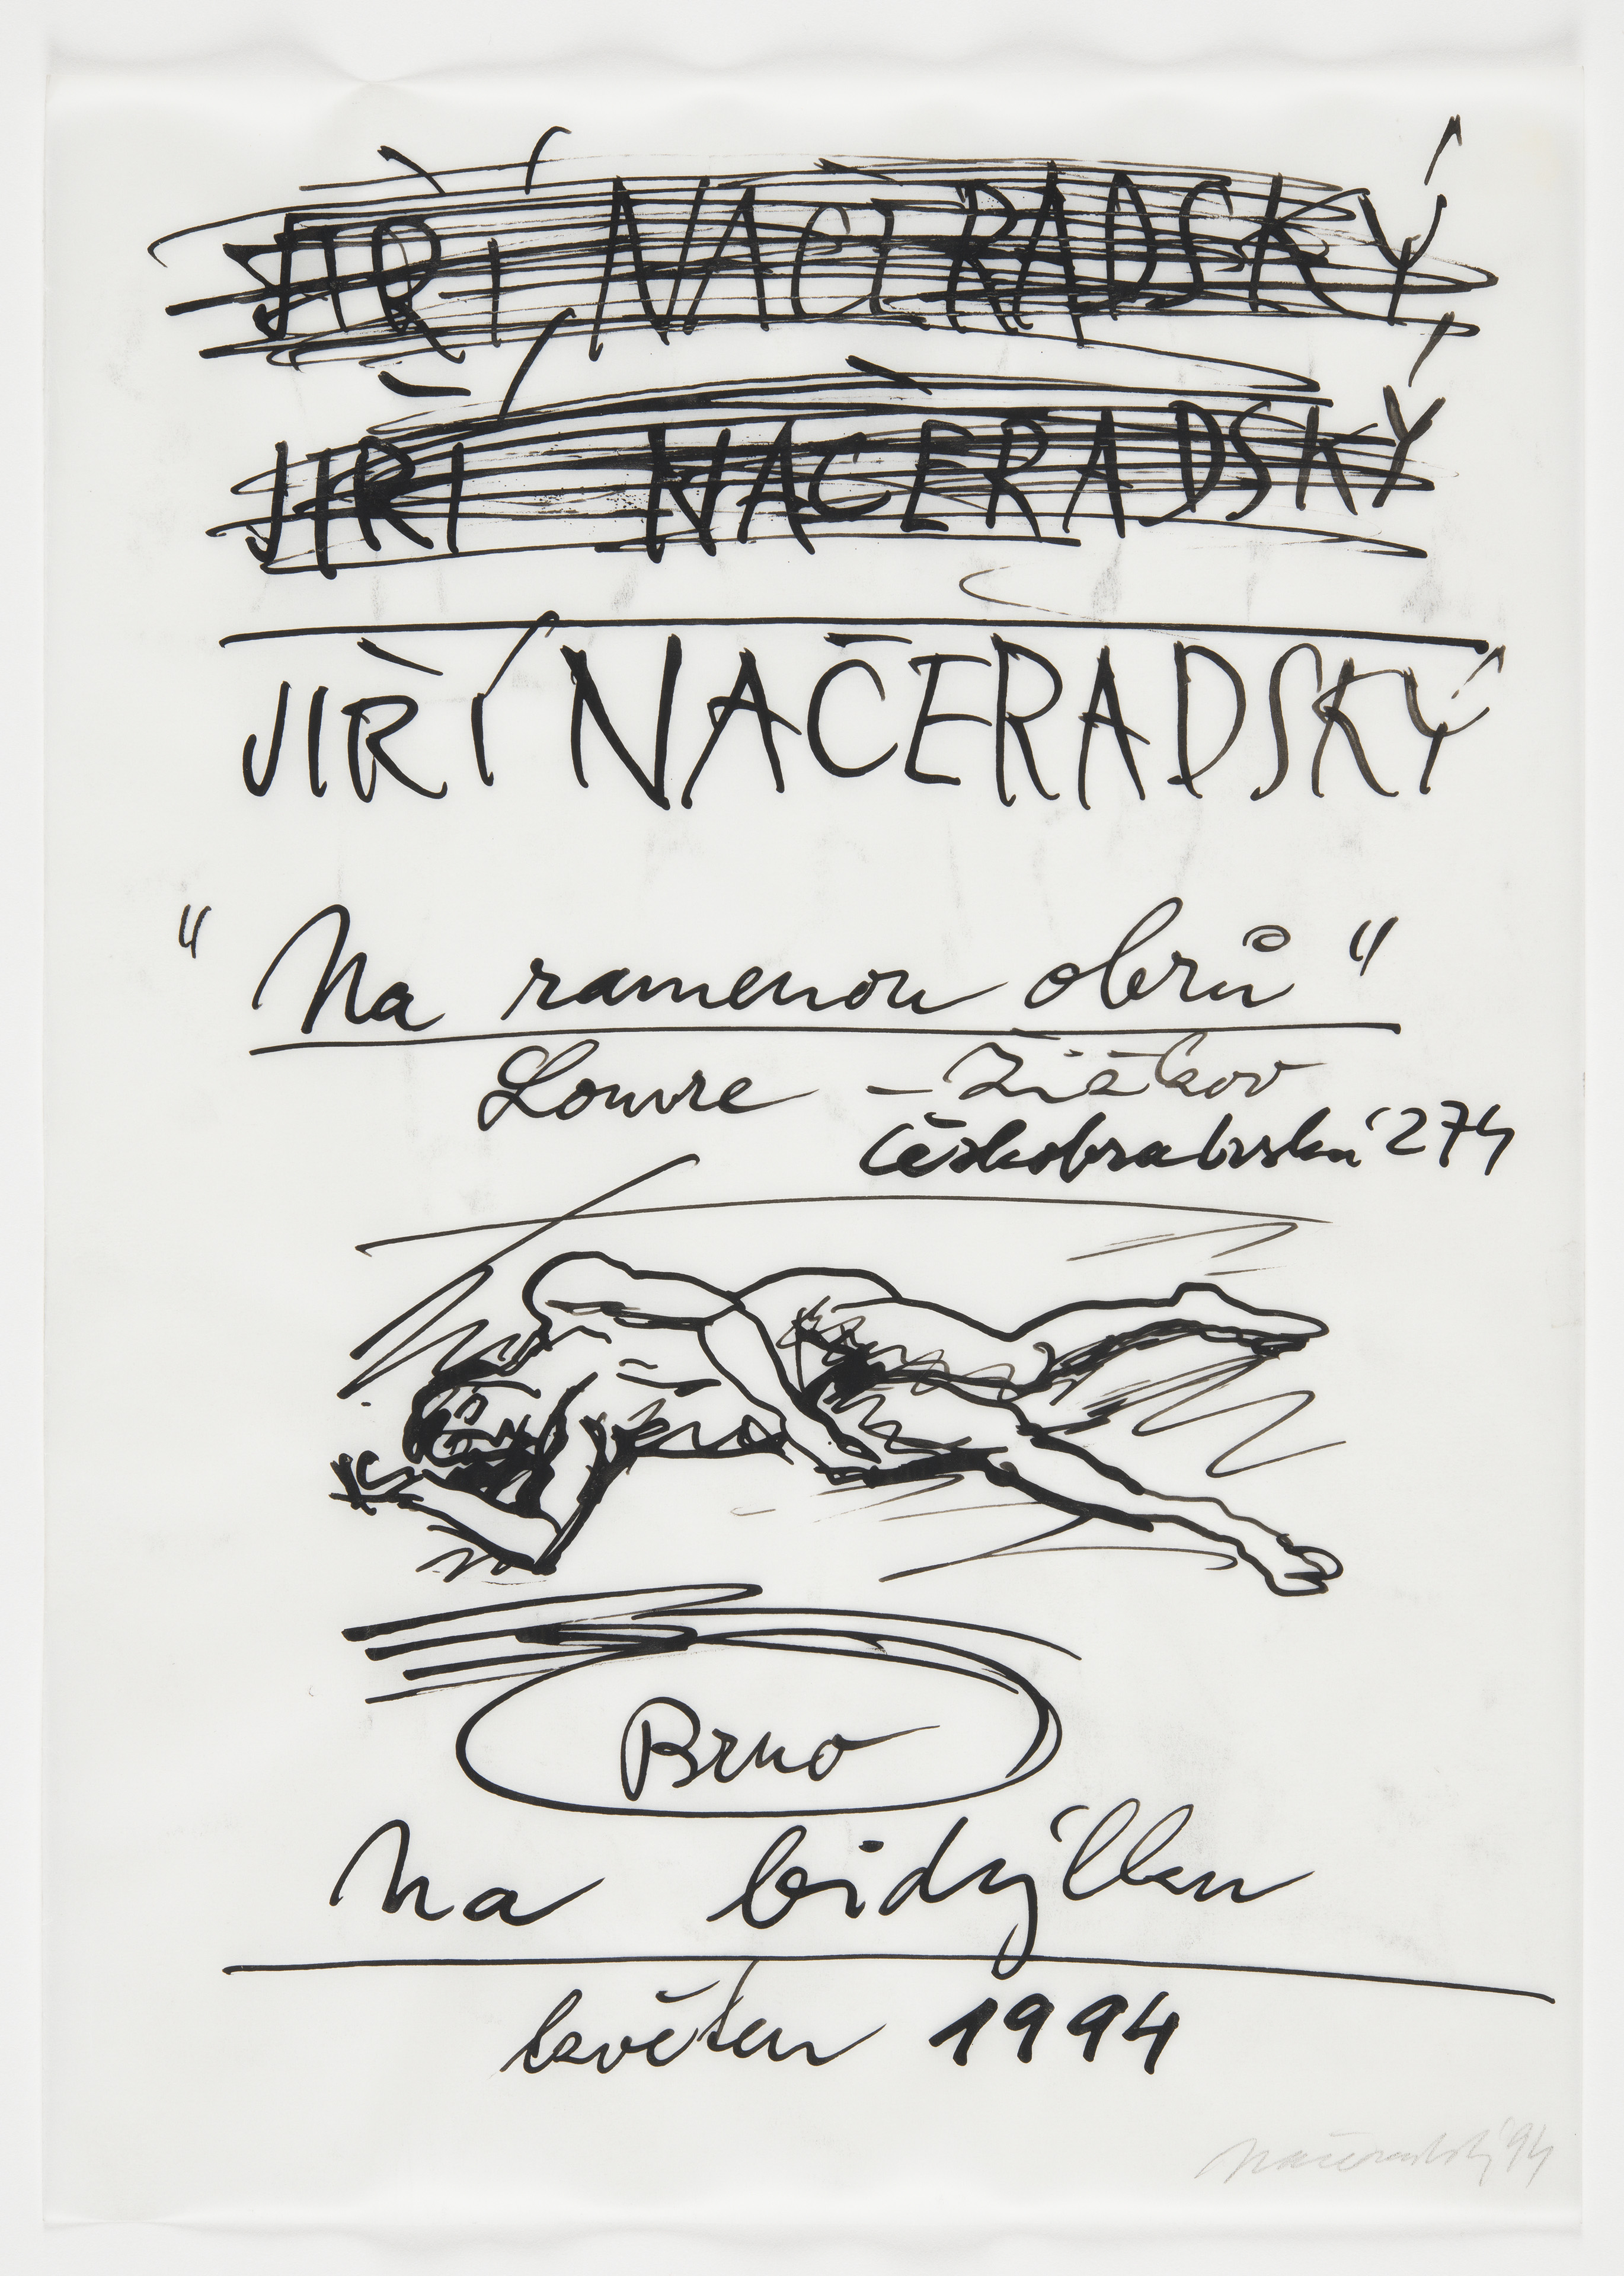 JIŘÍ NAČERADSKÝ
JIŘÍ NAČERADSKÝ
JIŘÍ NAČERADSKÝ
"Na ramenou obrů"
Louvre – Žižkov
Českobratrská 274
Brno
Na bidýlku
květen 1994
Načeradský '94